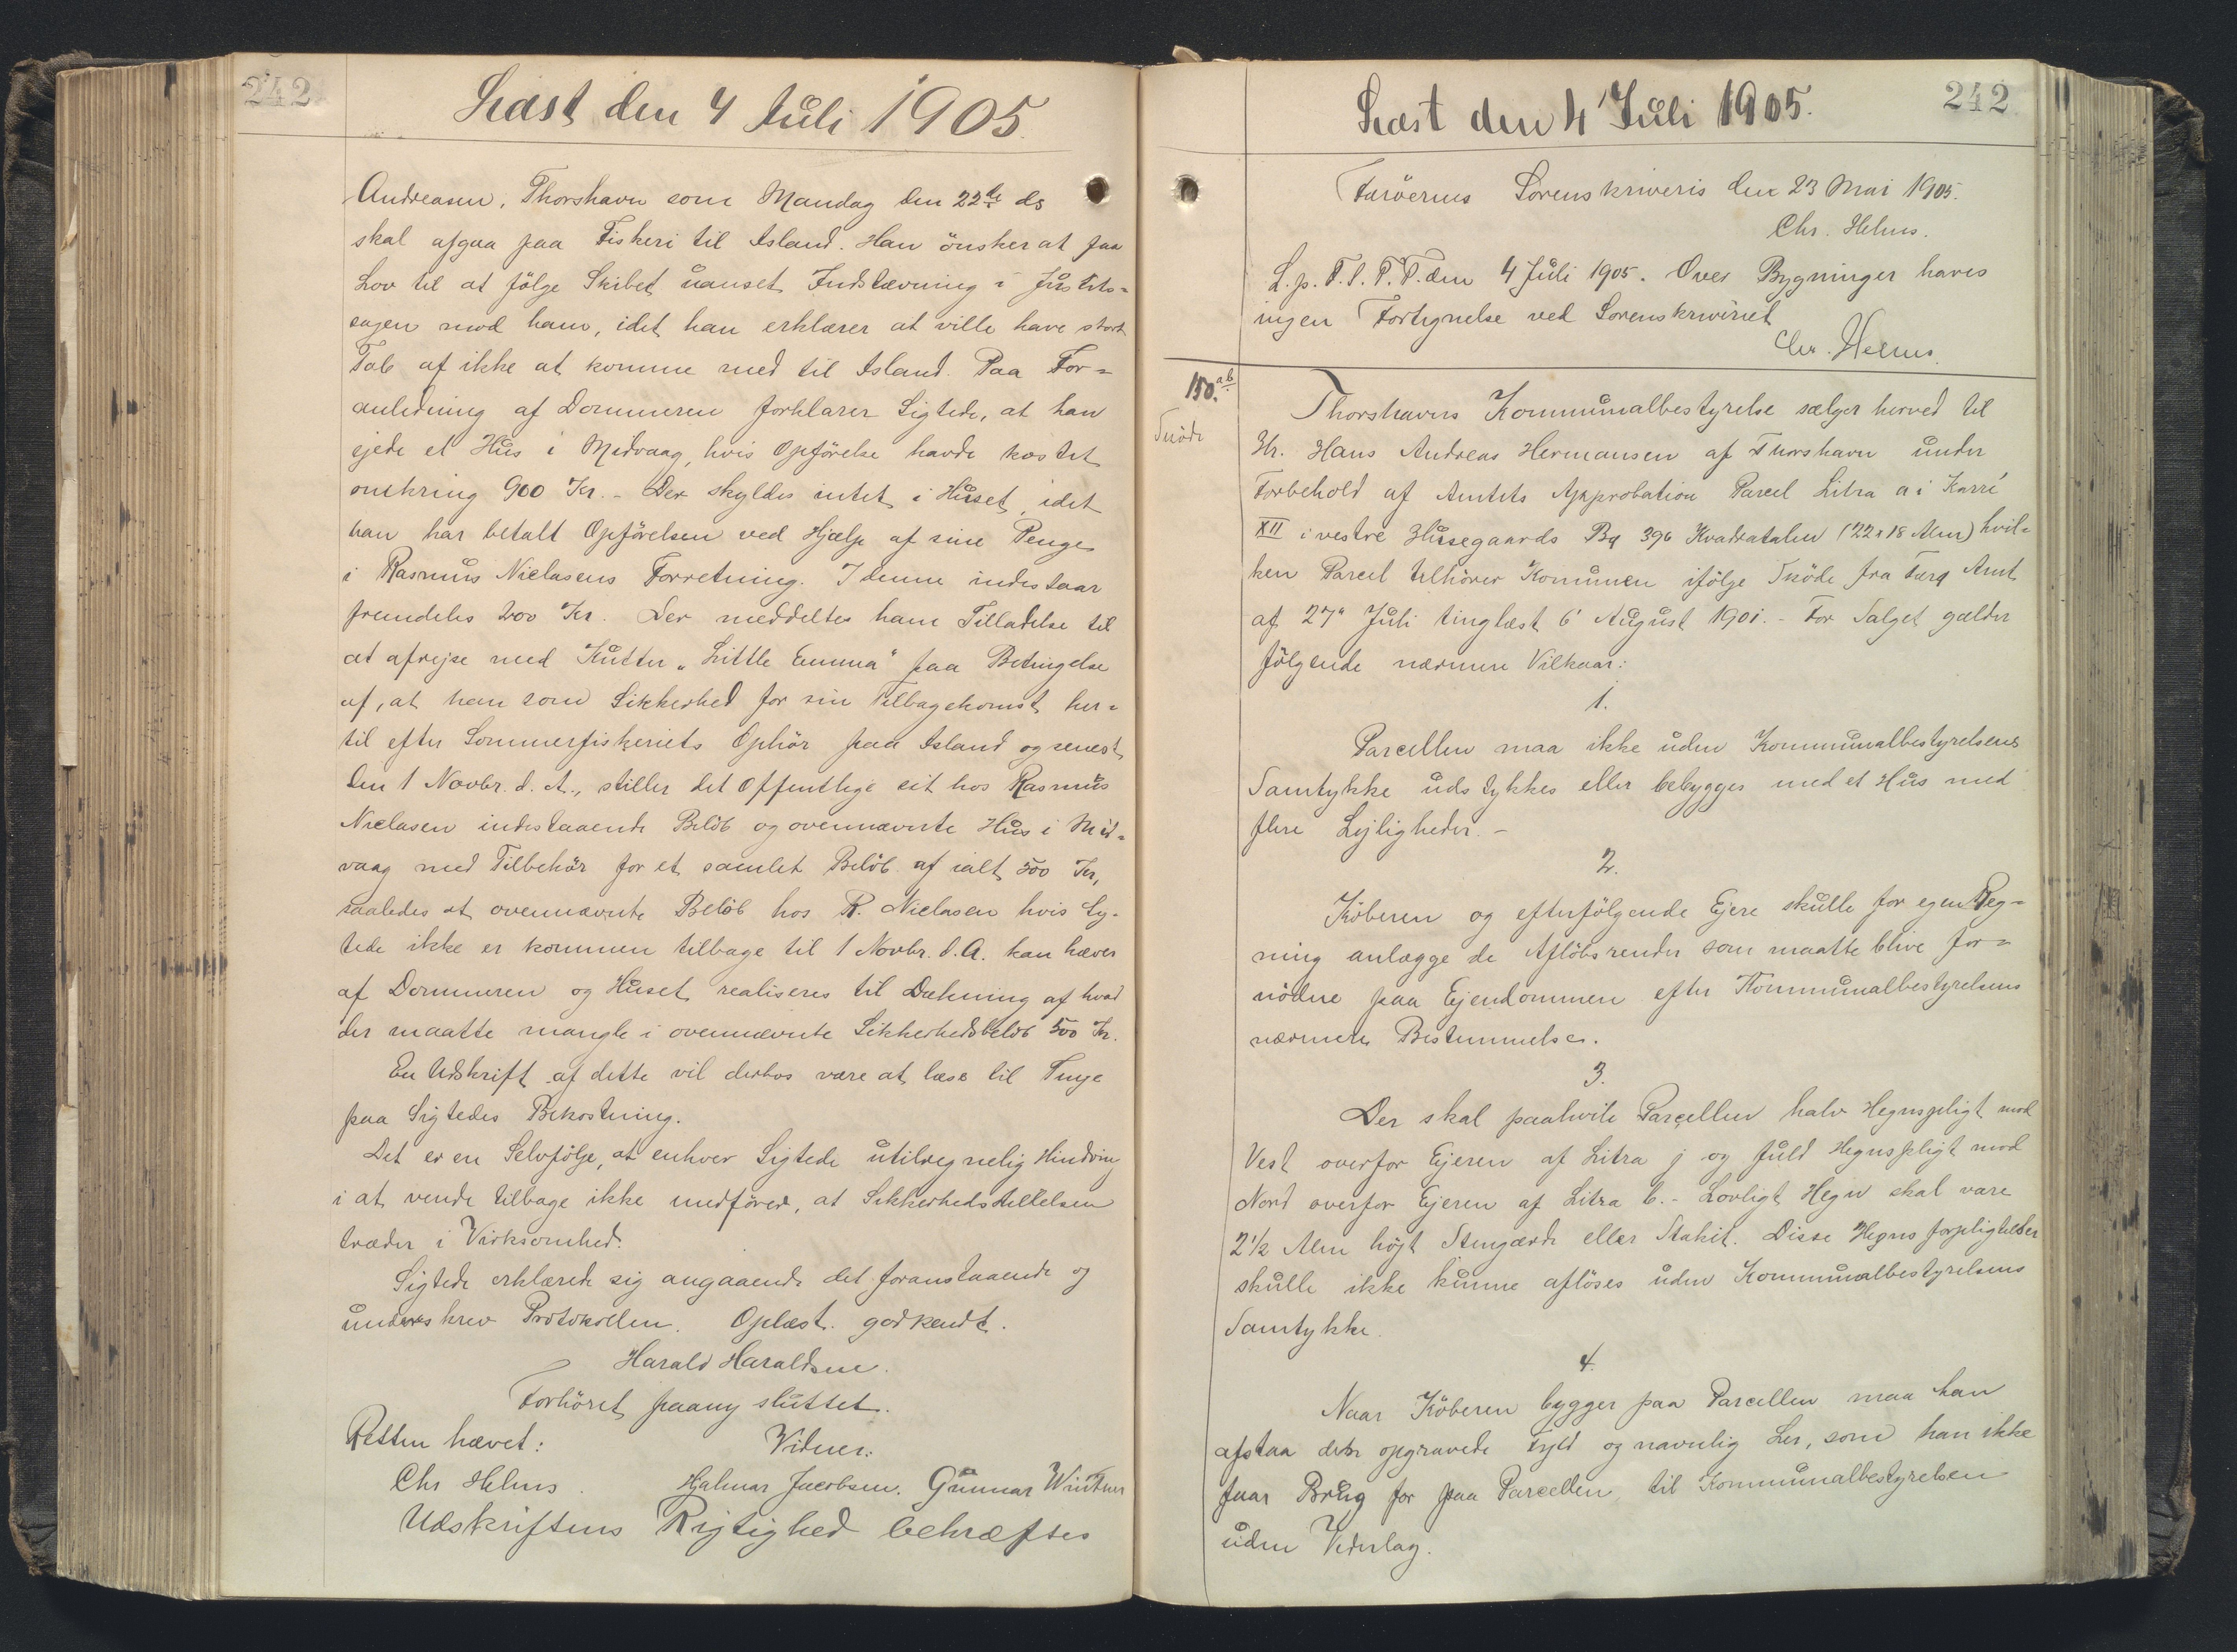 242
Læst den 4 Juli 1905.
Andreasen, Thorshavn som Mandag den 22de ds
skal afgaa paa Fiskeri til Island. Han önsker at faa
Lov til at fölge Skibet uanset Indstævning i Justits-
sagen mod ham, idet han erklærer at ville have stort
Tab af ikke at komme med til Island. Paa For-
anledning af Dommeren forklarer Sigtede, at han
ejede et Hus i Midvaag, hvis Opförelse havde kostet
omkring 900 Kr. - Der skyldes intet i Huset, idet
han har betalt Opförelsen ved Hjælp af sine Penge
i Rasmus Nielasens Forretning. I denne indestaar
fremdeles 200 Kr. Der meddeltes ham Tilladelse til
at afrejse med Kutter "Little Emma" paa Betingelse
af, at han som Sikkerhed for sin Tilbagekomst her-
til efter Sommerfiskeriets Ophör paa Island og senest
den 1 Novbr. d. A., stiller det Offentlige sit hos Rasmus
Nielasen indestaaende Belöb og ovennævnte Hus i Mid-
vaag med Tilbehör for et samlet Belöb af ialt 500 Kr,
saaledes at ovennævnte Belöb hos R. Nielasen hvis Sig-
tede ikke er kommen tilbage til 1 Novbr. d. A. kan hæves
af Dommeren og Huset realiseres til Dækning af hvad
der maatte mangle i ovennævnte Sikkerhedsbelöb 500 Kr.
En Udskrift af dette vil derhos være at læse til Tinge
paa Sigtedes Bekostning.
Det er en Selvfölge, at enhver Sigtede utilregnelig Hindring
i at vende tilbage ikke medförer, at Sikkerhedsstillelsen
træder i Virksomhed.
Sigtede erklærede sig angaaende det foranstaaende og
underskrev Protokollen. Oplæst. godkendt.
Harald Haraldsen.
Forhöret paany sluttet.
Retten hævet: Vidner:
Chr Helms. Hjalmar Jacobsen. Gunnar Winther
Udskriftens Rigtighed bekræftes
Læst den 4' Juli 1905.
242
Færöernes Sorenskriveri den 23 Mai 1905.
Chr. Helms.
L. p. F. S. T. P. den 4 Juli 1905. Over Bygninger haves
ingen Fortegnelse ved Sorenskriveriet
Chr. Helms.
150. ab
Skøde
Thorshavns Kommunalbestyrelse sælger herved til
Hr. Hans Andreas Hermansen af Thorshavn under
Forbehold af Amtets Approbation Parcel Litra a i Karré
XII i vestre Husegaards Bø 396 Kvadratalen (22 x 18 Alen) hvil-
ken Parcel tilhörer Komunen ifölge Sköde fra Færø Amt
af 27' Juli tinglæst 6' August 1901. - For Salget gælder
fölgende nærmere Vilkaar:
1.
Parcellen maa ikke uden Kommunalbestyrelsens
Samtykke udstykkes eller bebygges med et Hus med
flere Lejligheder. -
2.
Köberen og efterfölgende Ejere skulle for egen Reg-
ning anlægge de Aflöbsrender som maatte blive for-
nödne paa Ejendommen efter Kommunalbestyrelsens
nærmere Bestemmelse.
3.
Der skal paahvile Parcellen halv Hegnspligt mod
Vest overfor Ejeren af Litra j og fuld Hegnspligt mod
Nord overfor Ejeren af Litra b. - Lovligt Hegn skal være
2 1/2 Alen höjt Stengærde eller Stakit. Disse Hegns forpligtelser
skulle ikke kunne aflöses uden Kommunalbestyrelsens
Samtykke.
4.
Naar Köberen bygger paa Parcellen maa han
afstaa den opgravede Fyld og navnlig Ler, som han ikke
faar Brug for paa Parcellen til Kommunalbestyrelsen
uden Vederlag.